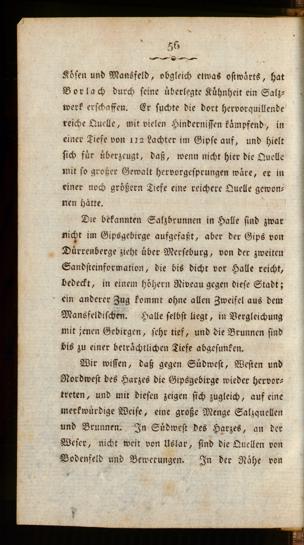 56
Kösen und Mansfeld, obgleich etwas ostwärts, hat
Borlach durch seine überlegte Kühnheit ein Salz-
werk erschaffen. Er suchte die dort hervorquillende
reiche Quelle, mit vielen Hindernissen kämpfend, in
einer Tiefe von 112 Lachter im Gipse auf, und hielt
sich für überzeugt, daß, wenn nicht hier die Quelle
mit so großer Gewalt hervorgesprungen wäre, er in
einer noch größern Tiefe eine reichere Quelle gewon-
nen hätte.
Die bekannten Salzbrunnen in Halle sind zwar
nicht im Gipsgebirge aufgefaßt, aber der Gips von
Dürrenberge zieht über Merseburg, von der zweiten
Sandsteinformation, die bis dicht vor Halle reicht,
bedeckt, in einem höhern Niveau gegen diese Stadt;
ein anderer Zug kommt ohne allen Zweifel aus dem
Mansfeldischen. Halle selbst liegt, in Vergleichung
mit jenen Gebirgen, sehr tief, und die Brunnen sind
bis zu einer beträchtlichen Tiefe abgesunken.
Wir wissen, daß gegen Südwest, Westen und
Nordwest des Harzes die Gipsgebirge wieder hervor-
treten, und mit diesen zeigen sich zugleich, auf eine
merkwürdige Weise, eine große Menge Salzquellen
und Brunnen. In Südwest des Harzes, an der
Weser, nicht weit von Uslar, sind die Quellen von
Bodenfeld und Bewerungen. In der Nähe von